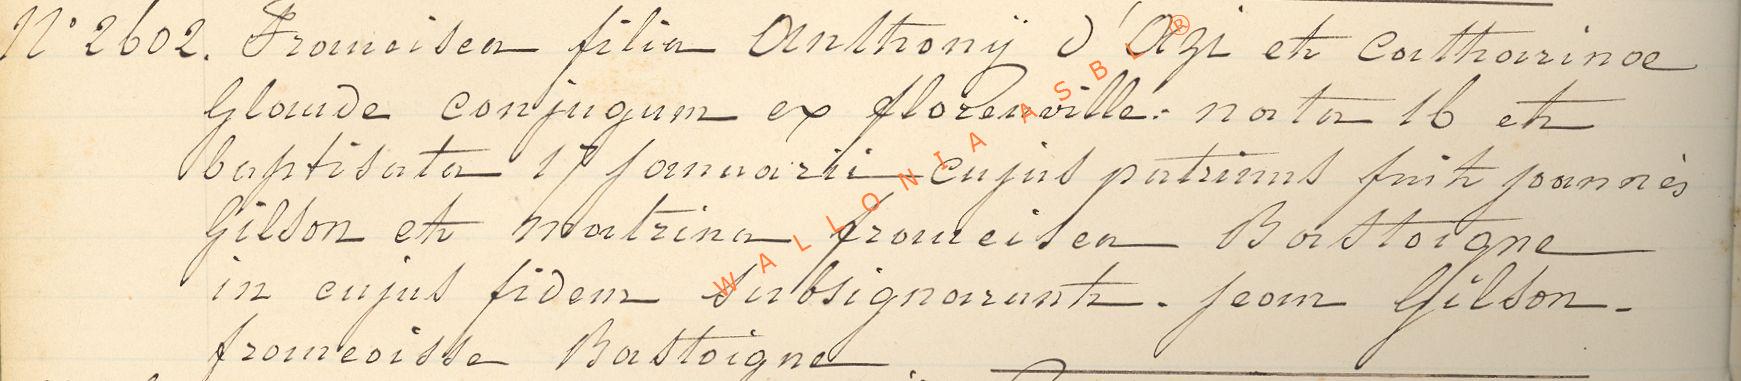 N° 2602. Francisca filia Anthonÿ d'Azi et Catharinae
Glaude conjugum ex florenville. nata 16 et
baptisata 17 januarii cujus patrinus fuit joannès
Gilson et matrina francisca Bastoigne
in cujus fidem subsignarunt. jean Gilson.
francoisse Bastoigne
WALLONIA ASBL ®